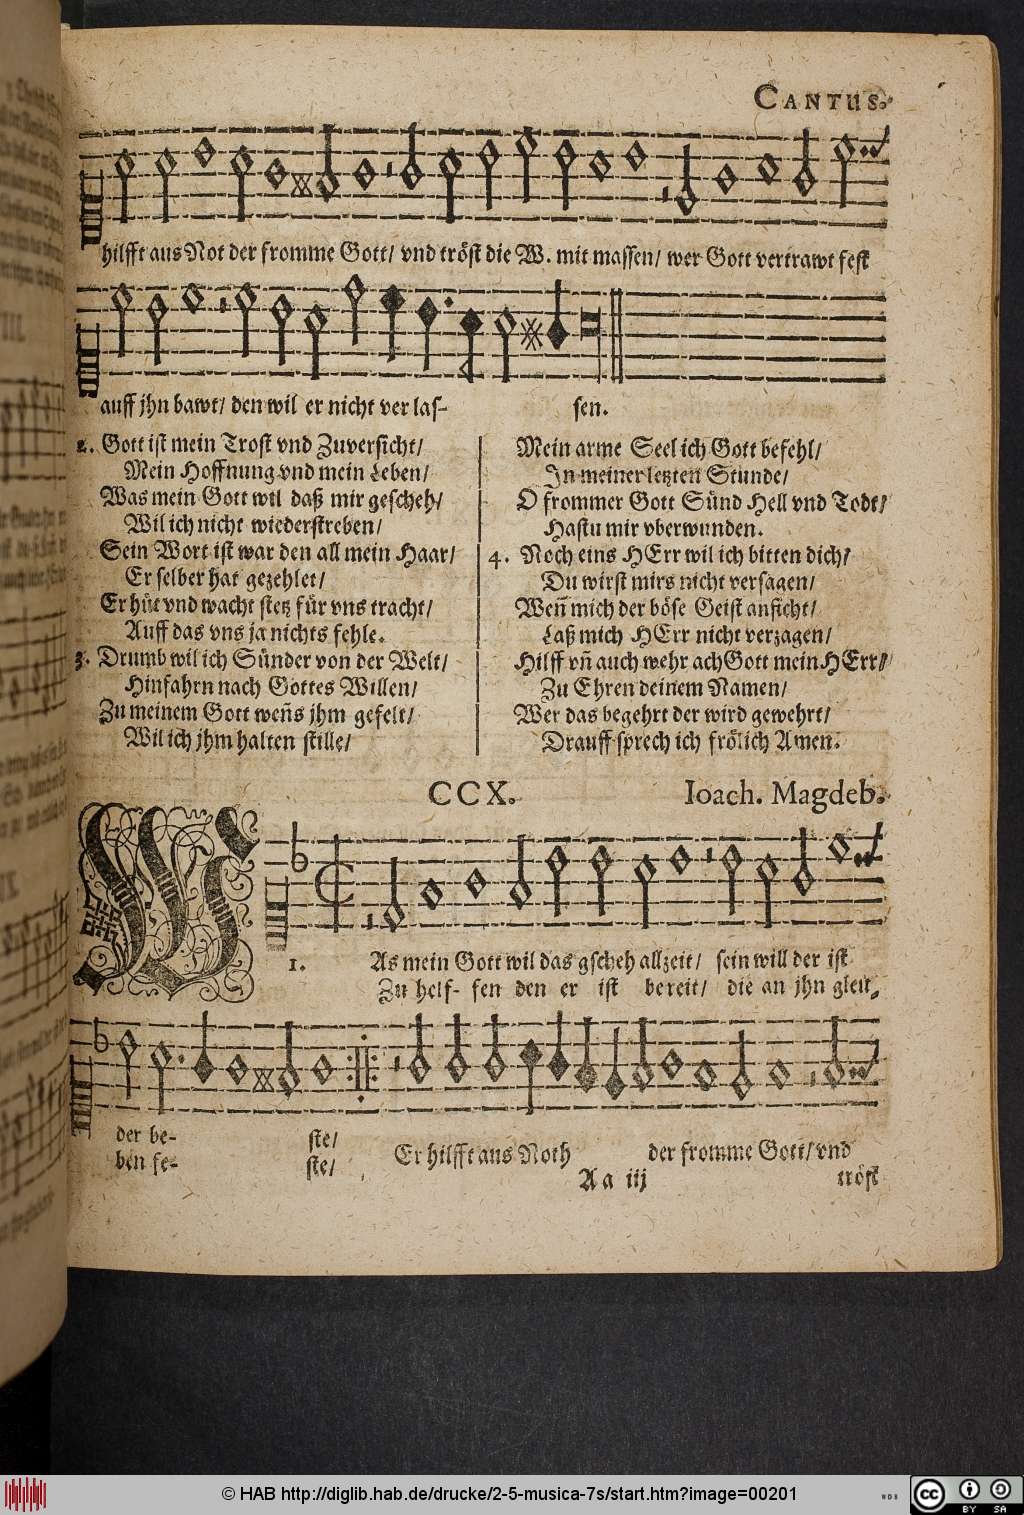 CANTUS.
hilfft aus Not der fromme Gott/ vnd tröst die W. mit massen/ wer Gott vertrawt fest
auff jhn bawt/ den wil er nicht ver las- sen.
2. Gott ist mein Trost vnd Zuversicht/
Mein Hoffnung vnd mein Leben/
Was mein Gott wil daß mir gescheh/
Wil ich nicht wiederstreben/
Sein Wort ist war den all mein Haar/
Er selber hat gezehlet/
Er hüt vnd wacht stetz für vns tracht/
Auff das vns ja nichts fehle.
3. Drumb wil ich Sünder von der Welt/
Hinfahrn nach Gottes Willen/
Zu meinem Gott weñs jhm gefelt/
Wil ich jhm halten stille/
Mein arme Seel ich Gott befehl/
In meiner letzten Stunde/
O frommer Gott Sünd Hell vnd Todt/
Hastu mir vberwunden.
4. Noch eins HErr wil ich bitten dich/
Du wirst mirs nicht versagen/
Weñ mich der böse Geist anficht/
Laß mich HErr nicht verzagen/
Hilff vñ auch wehr ach Gott mein HErr/
Zu Ehren deinem Namen/
Wer das begehrt der wird gewehrt/
Drauff sprech ich frölich Amen.
CCX. Ioach. Magdeb.
1. WAs mein Gott wil das gscheh allzeit/ sein will der ist
Zu helf- fen den er ist bereit/ die an jhn gleu-
der be- ste/ Er hilfft aus Noth der fromme Gott/ vnd
ben fe- ste/
Aa iij tröst
© HAB http://diglib.hab.de/drucke/2-5-musica-7s/start.htm?image=00201
WDB
cc BY SA